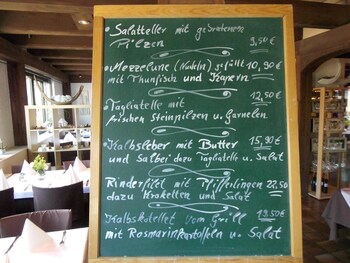 • Salatteller mit gebratenem
Pilzen 9,50€
• Mezzelune (Nudeln) gefüllt 10,90€
mit Thunfisch und Kapern
• Tagliatelle mit 12,50€
frischen Steinpilzen u. Garnelen
• Kalbsleber mit Butter 15,90€
und Salbei dazu Tagliatelle u. Salat
Rinderfilet mit Pfifferlingen 22,50
dazu Kroketten und Salat €
• Kalbskotelett vom Grill 19.50€
mit Rosmarinkartoffeln u. Salat